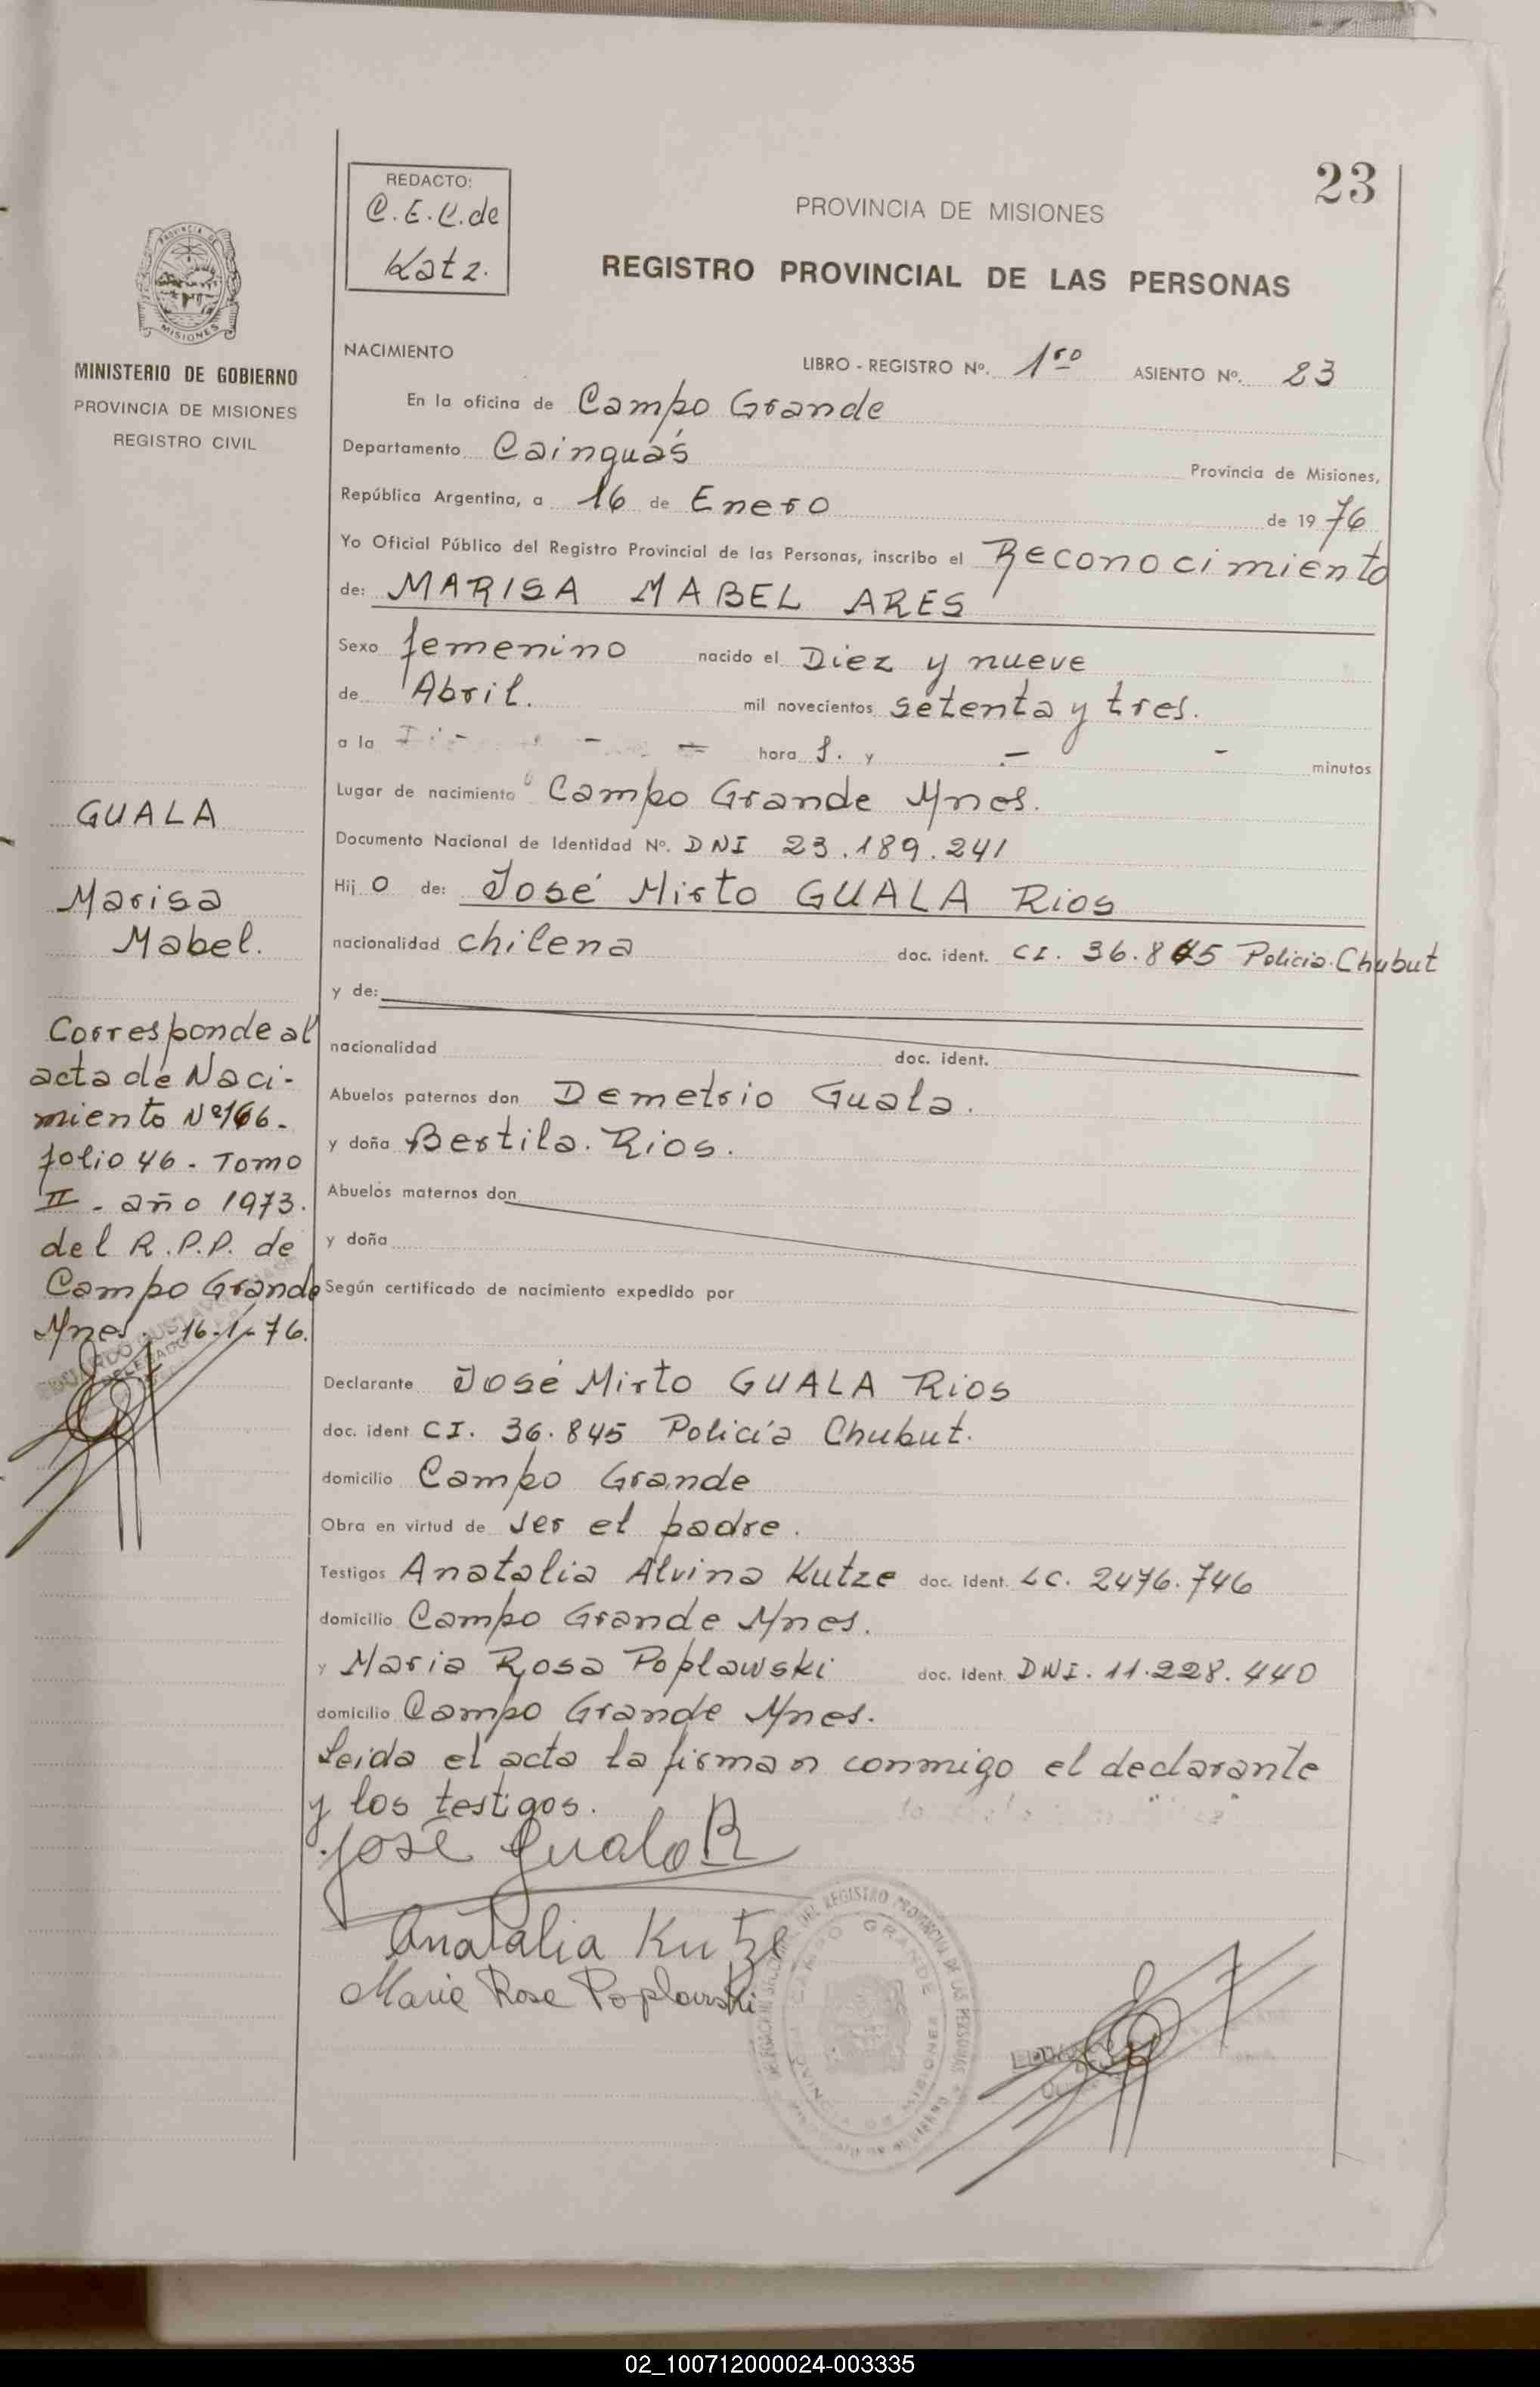 23
REDACTO:
C.E.C. de
Katz.
PROVINCIA DE MISIONES
REGISTRO PROVINCIAL DE LAS PERSONAS
PROVINCIA DE
MISIONES
MINISTERIO DE GOBIERNO
PROVINCIA DE MISIONES
REGISTRO CIVIL
NACIMIENTO
LIBRO - REGISTRO Nº. 1ro ASIENTO Nº. 23
En la oficina de Campo Grande
Departamento Cainguás Provincia de Misiones,
República Argentina, a 16 de Enero de 1976
Yo Oficial Público del Registro Provincial de las Personas, inscribo el Reconocimiento
de: MARISA MABEL ARES
Sexo femenino nacido el Diez y nueve
de Abril. mil novecientos setenta y tres.
a la hora s. y - - minutos
Lugar de nacimiento Campo Grande Mnes.
Documento Nacional de Identidad Nº. DNI 23.189.241
Hij o de: José Mirto GUALA Rios
nacionalidad chilena doc. ident. CI. 36.845 Policia Chubut
y de:
nacionalidad doc. ident.
Abuelos paternos don Demetrio Guala.
y doña Bertila. Rios.
Abuelos maternos don
y doña
Según certificado de nacimiento expedido por
Declarante José Mirto GUALA Rios
doc. ident CI. 36.845 Policía Chubut.
domicilio Campo Grande
Obra en virtud de ser el padre.
Testigos Anatalia Alvina Kutze doc. ident. LC. 2476.746
domicilio Campo Grande Mnes.
y Maria Rosa Poplawski doc. ident. DNI. 11.228.440
domicilio Campo Grande Mnes.
Leida el acta la firman conmigo el declarante
y los testigos.
José Guala R
Anatalia Kutze
Maria Rosa Poplawski
GUALA
Marisa
Mabel.
Corresponde al
acta de Naci-
miento Nº 166-
folio 46 - Tomo
II - año 1973.
del R.P.P. de
Campo Grande
Mnes. 16-1-76.
DEL REGISTRO PROVINCIAL DE LAS PERSONAS
CAMPO GRANDE
PROVINCIA DE MISIONES
02_100712000024-003335